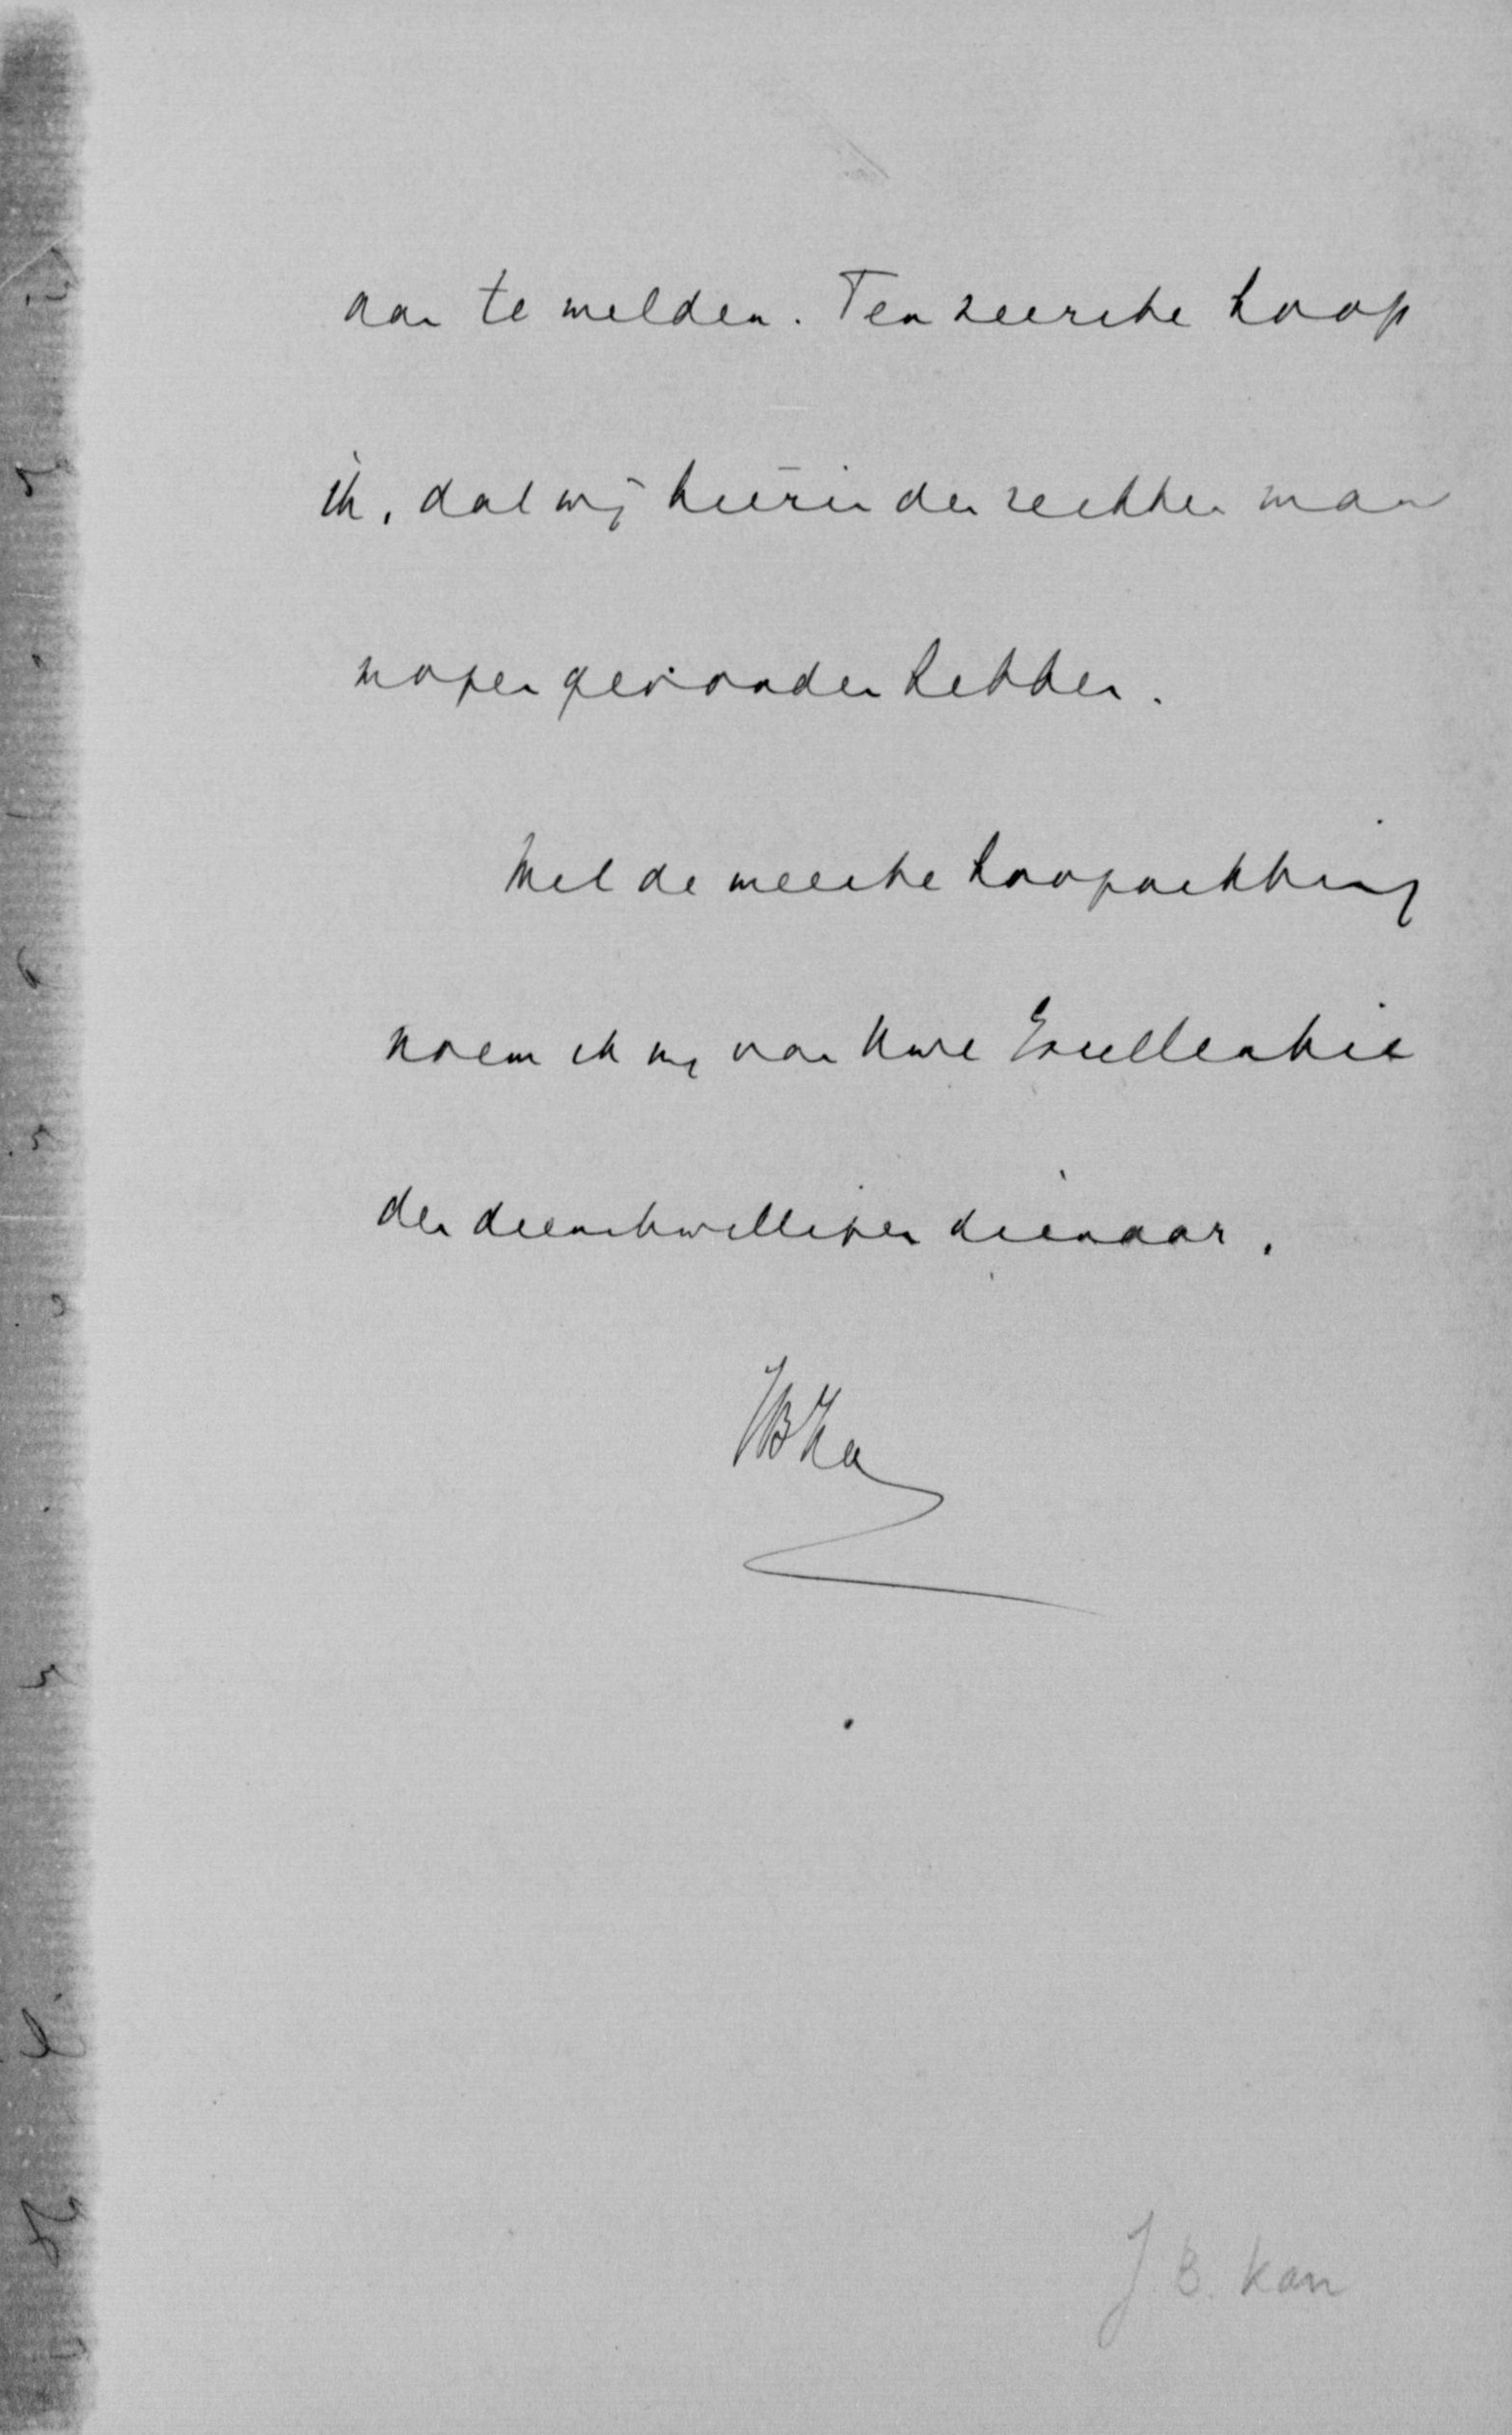 aan te melden. Ten zeerste hoop
ik, dat wij hierin den rechten man
mogen gevonden hebben.
Met de meeste hoogachting
noem ik mij van Uwe Excellentie
den dienstwilligen dienaar,
JB Kan
J. B. Kan